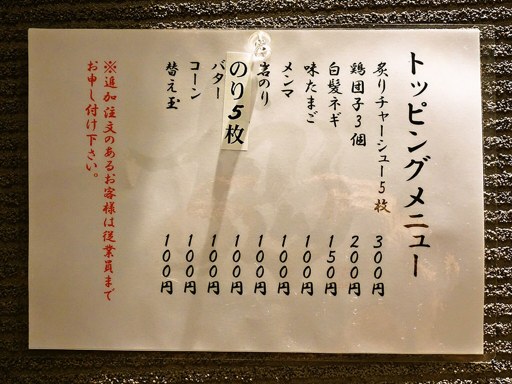 トッピングメニュー
炙りチャーシュー5枚 300円
鶏団子3個 200円
白髪ネギ 150円
味たまご 100円
メンマ 100円
岩のり 100円
のり5枚 100円
バター 100円
コーン 100円
替え玉 100円
※追加注文のあるお客様は従業員まで
お申し付け下さい。